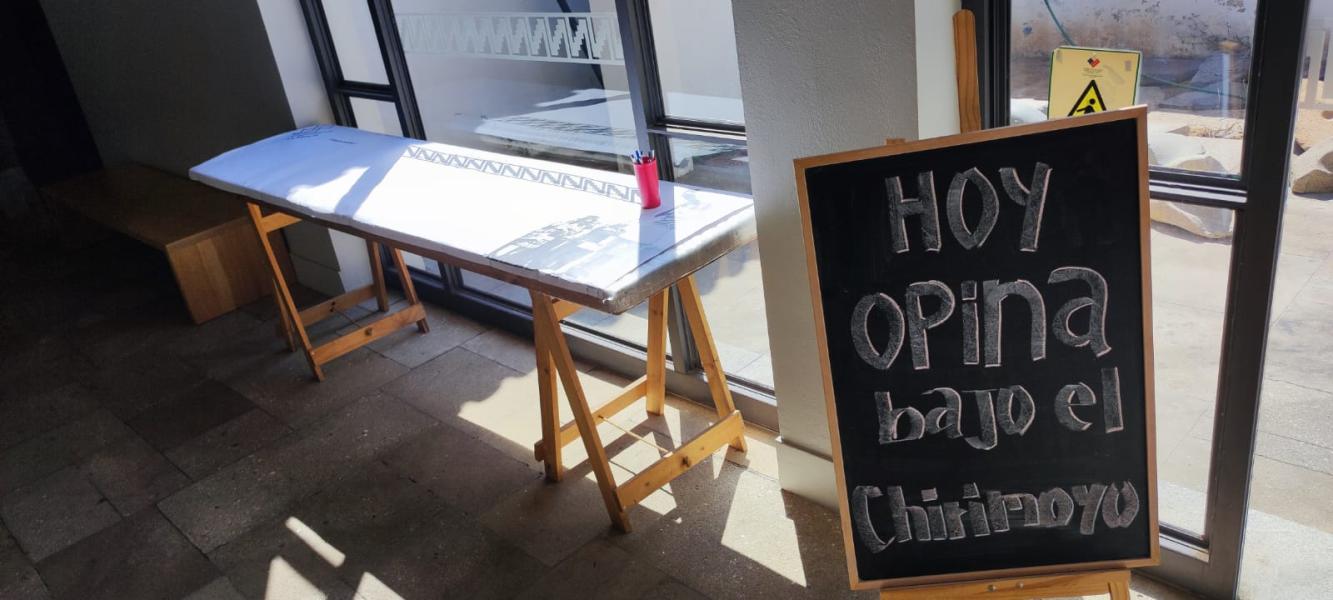 HOY
OPina
bajo el
Chirimoyo